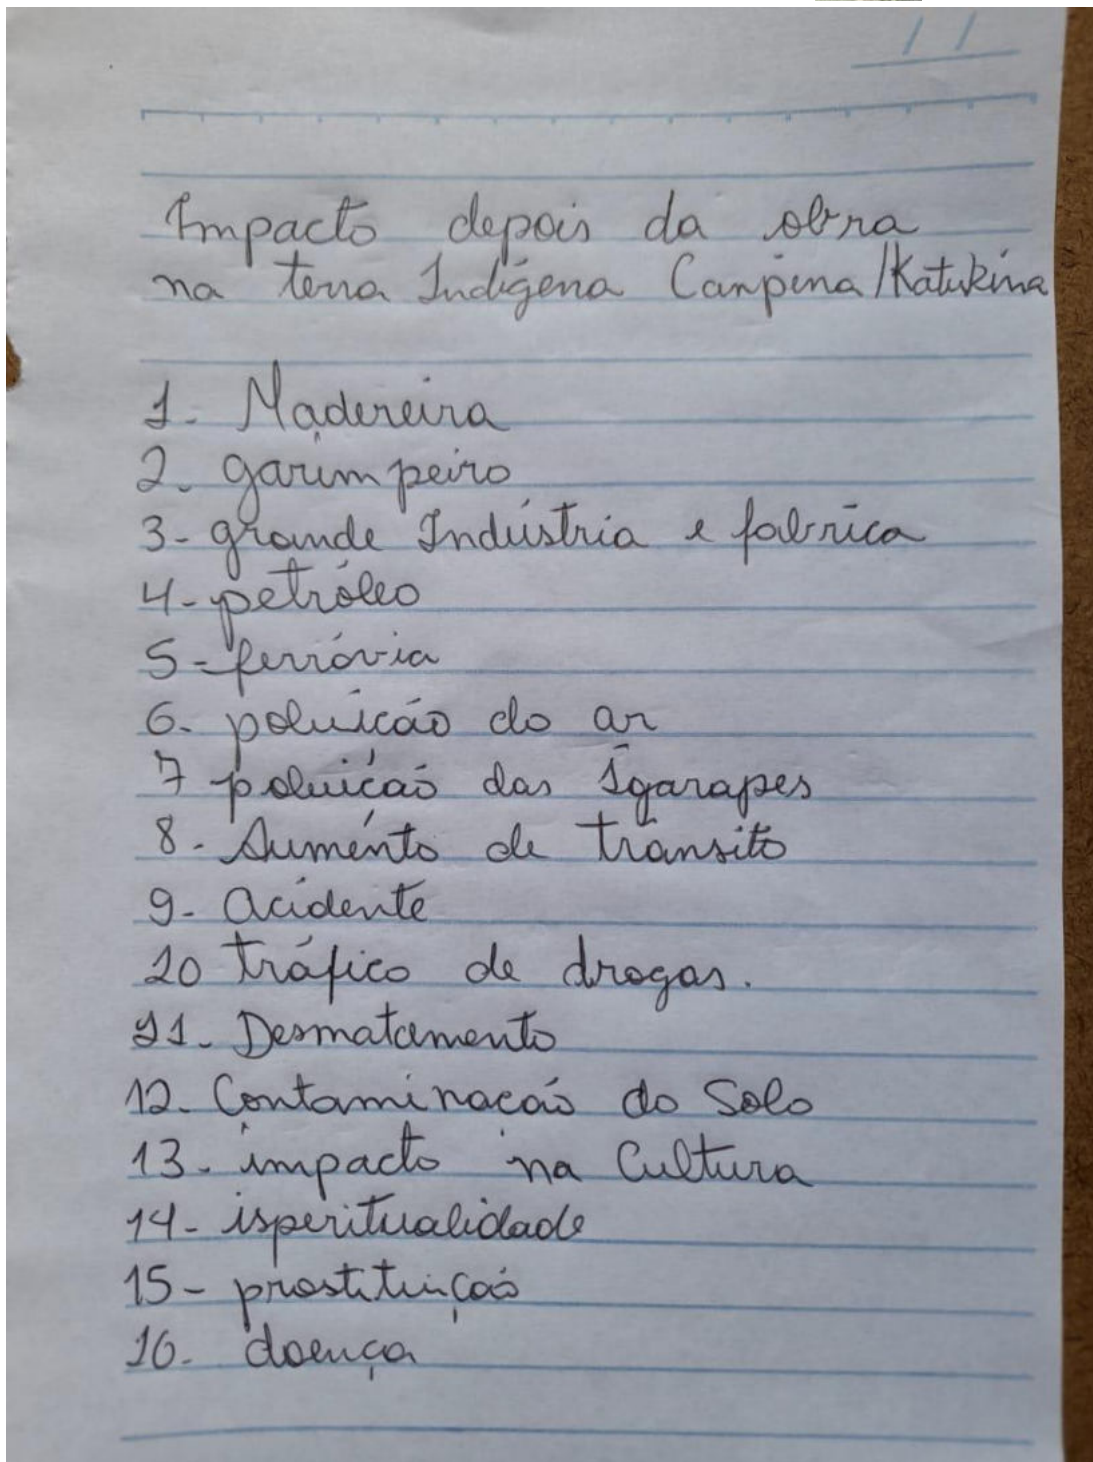 Impacto depois da obra
na terra Indígena Campina/Katukina
1- Madereira
2- garimpeiro
3- grande Indústria e fabrica
4- petróleo
5- ferróvia
6- poluicáo do ar
7 poluicaó das Igarapes
8- Aumento de trânsito
9- acidente
10 tráfico de drogas.
11- Desmatamento
12- Contaminacaó do Solo
13- impacto na Cultura
14- isperitualidade
15- prostituiçaó
16- doença